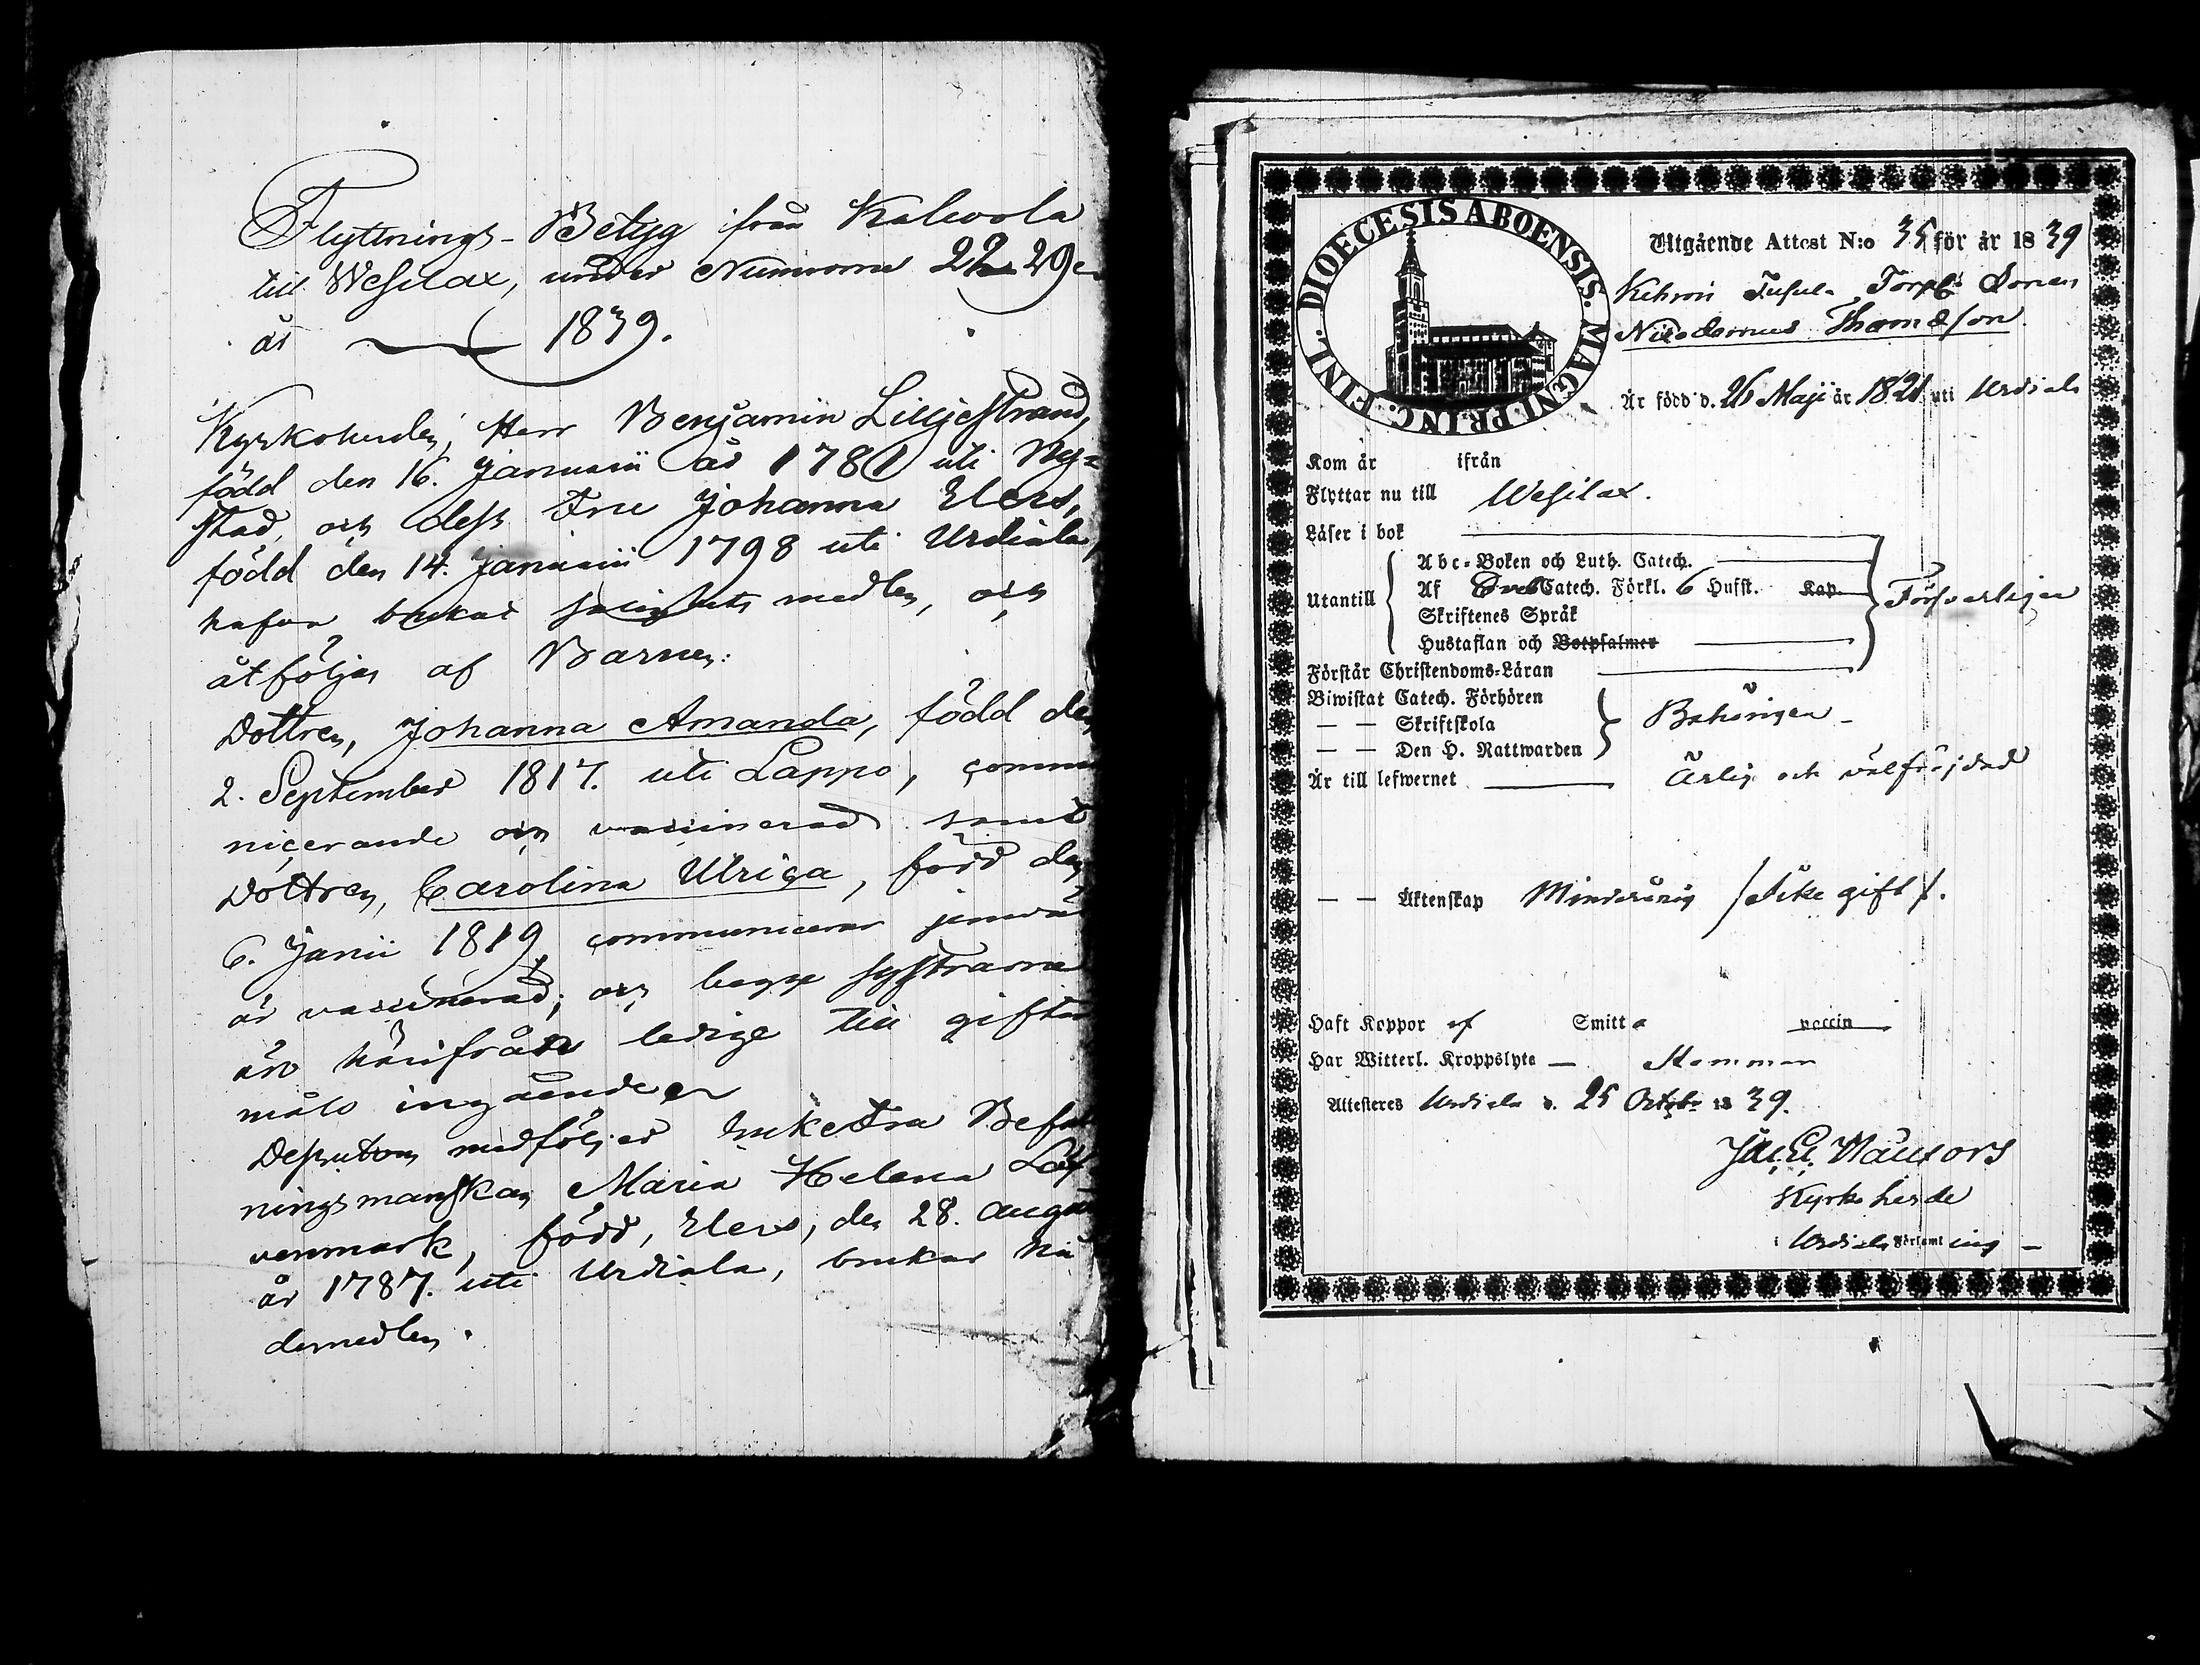 Flyttnings-Betyg ifrån Kalvola
till Wesilax, under Numrorne 22 29
år 1839.
Kyrkoherden, Herr Benjamin Liljestrand,
född den 16. Januarii år 1781 uti Ny=
stad, och dess Fru Johanna Elers,
född den 14. Januarii 1798 uti Urdiala,
hafva brukat salighets medlen, och
åtföljas af Barnen:
Dottren, Johanna Amanda, född den
2. September 1817. uti Lappo, commu
nicerande och vaccinerad samt
Dottren, Carolina Ulrica, född den
6. Junii 1819, communicerar jemväl
är vaccinerad; och begge systrarna
äro härifrån ledige till gifter
måls ingående
Dessutom medföljer Enkefru Befall
ningsmanskan Maria Helena Löf
venmark, född, Elers, den 28. augusti
år 1787. uti Urdiala, brukar nå
demedlen.
DIOECESIS ABOENSIS. MAGNI PRINC. FINL.
Utgående Attest N:o 35 för år 1839
Torp: Sonen
Nicodemus Thomasson.
Är född d. 26 Maji år 1821 uti Urdiala
Kom år ifrån
Flyttar nu till Wesilax.
Läser i bok
Utantill
Abc=Boken och Luth. Catech.
Af Sveb Catech. Förkl. 6 Hufst. Kap.
Skriftenes Språk
Hustaflan och Botpsalmer
Försvarligen
Förstår Christendoms=Läran
Biwistat Catech. Förhören
— — Skriftskola
— — Den H. Nattwarden
Behörigen
Är till lefwernet Ärlig och välfräjdad
— — Äktenskap Minderårig / Icke gift /.
Haft Koppor af Smitta vaccin
Har Witterl. Kroppslyte — Stammar
Attesteres Urdiala d. 25 Octob: 1839.
Kyrkoherde
i Urdiala Församling